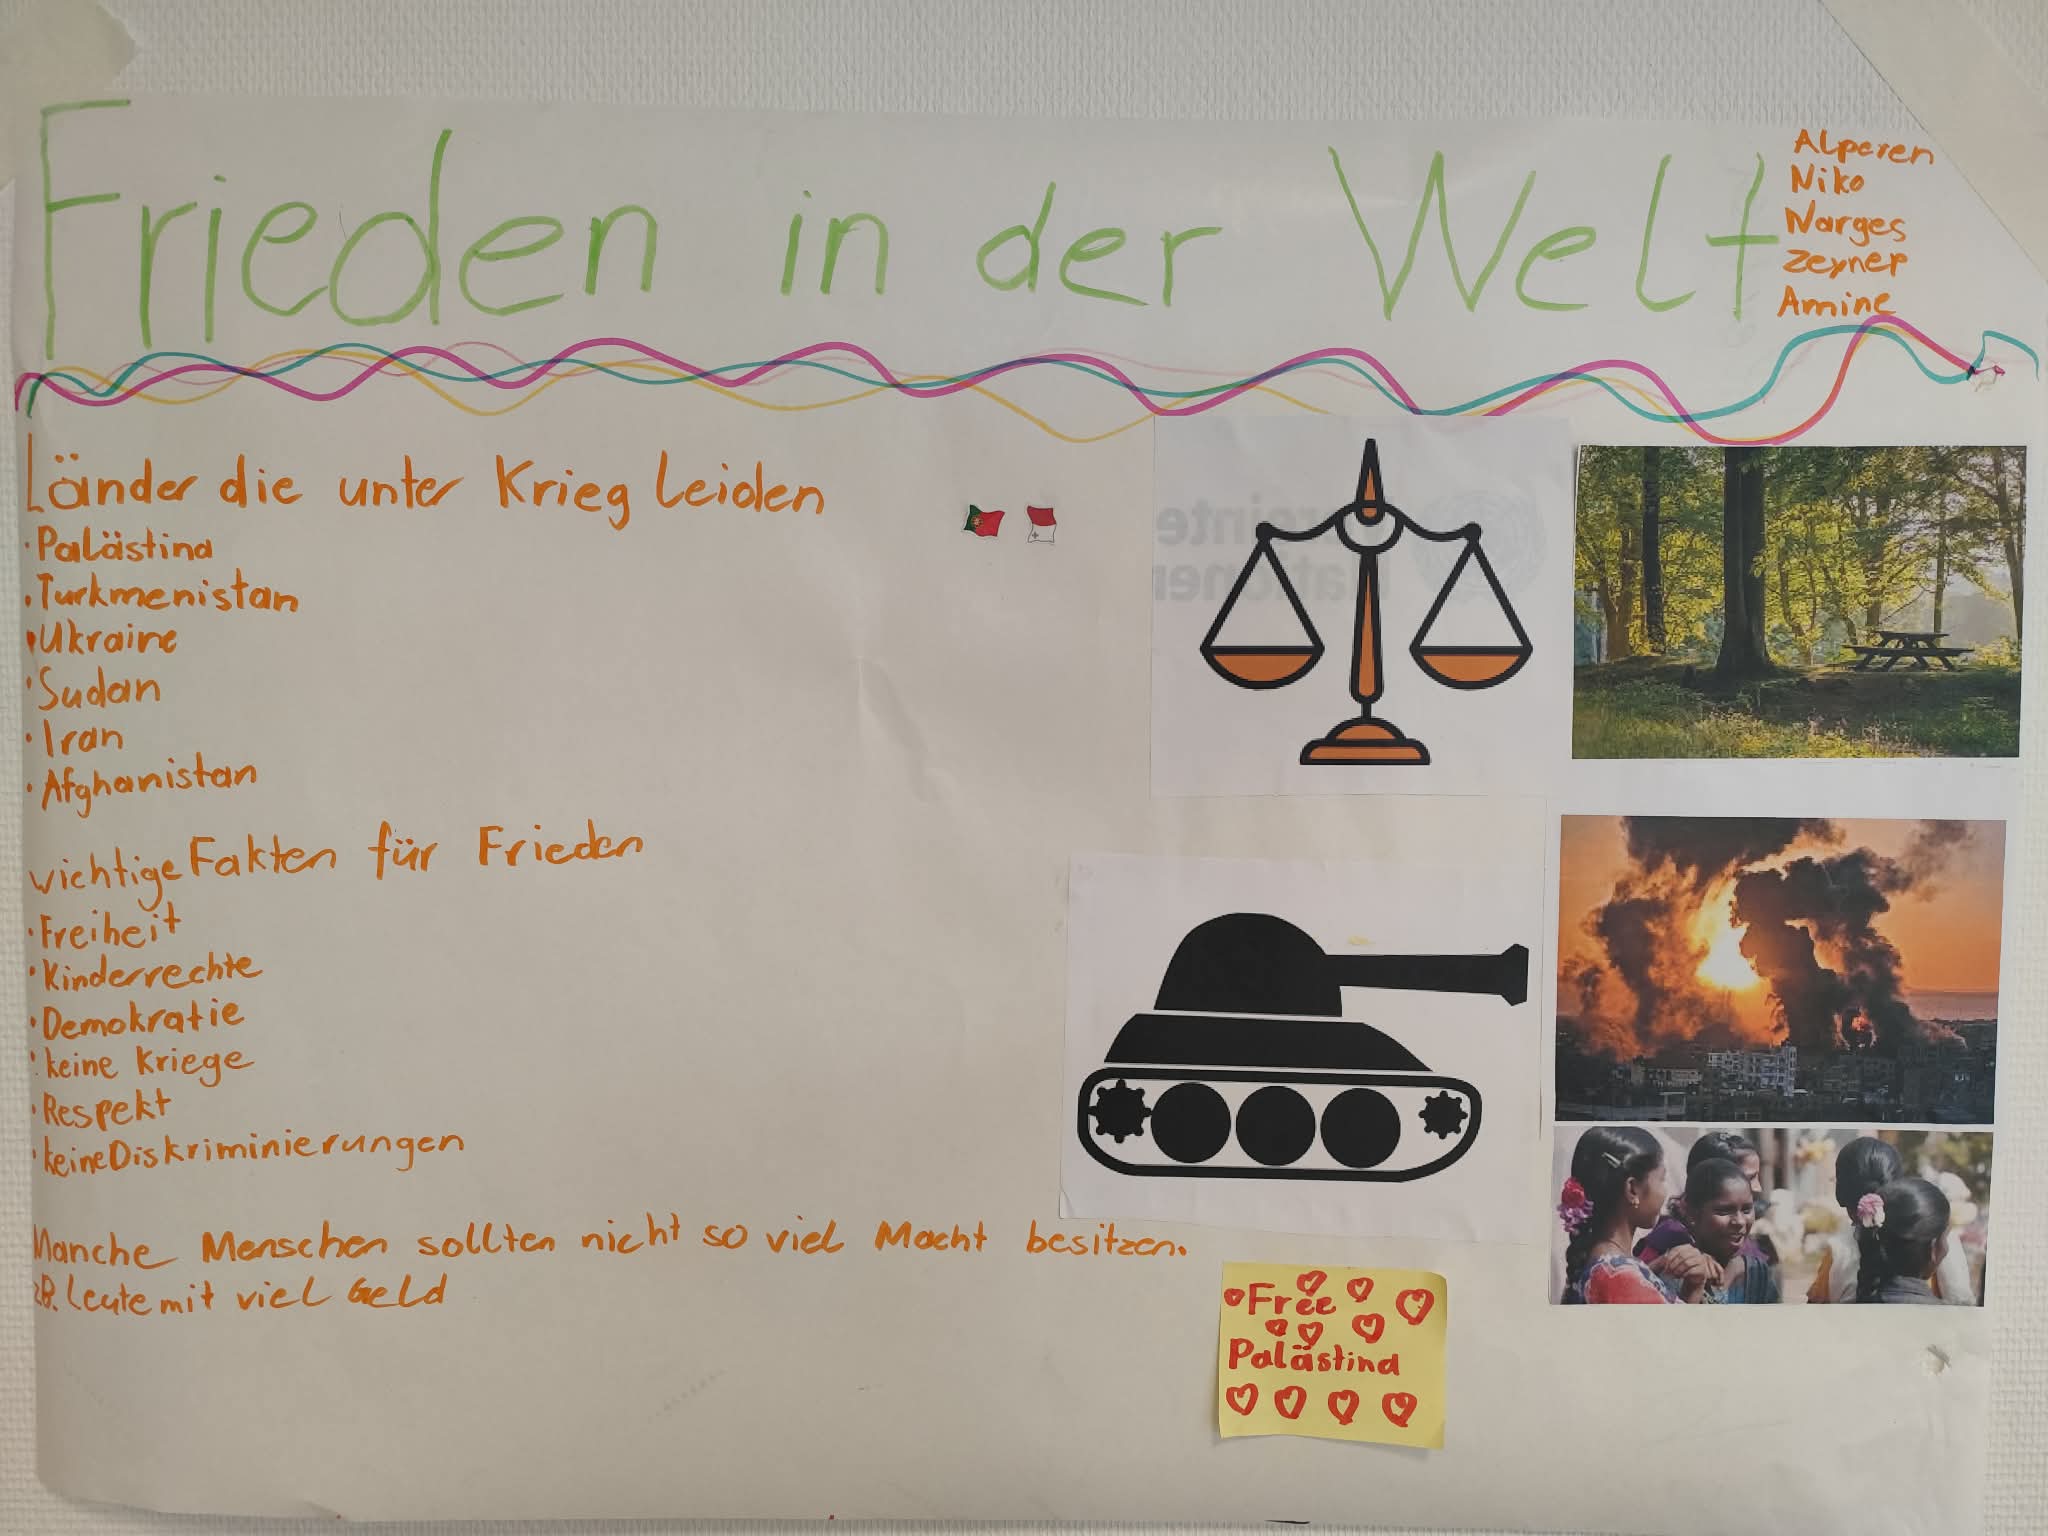 Frieden in der Welt
Alperen
Niko
Narges
Zeynep
Amine
Länder die unter Krieg leiden
· Palästina
· Turkmenistan
· Ukraine
· Sudan
· Iran
· Afghanistan
wichtige Fakten für Frieden
· Freiheit
· Kinderrechte
· Demokratie
· keine Kriege
· Respekt
· keine Diskriminierungen
Manche Menschen sollten nicht so viel Macht besitzen.
zB. leute mit viel Geld
Free
Palästina